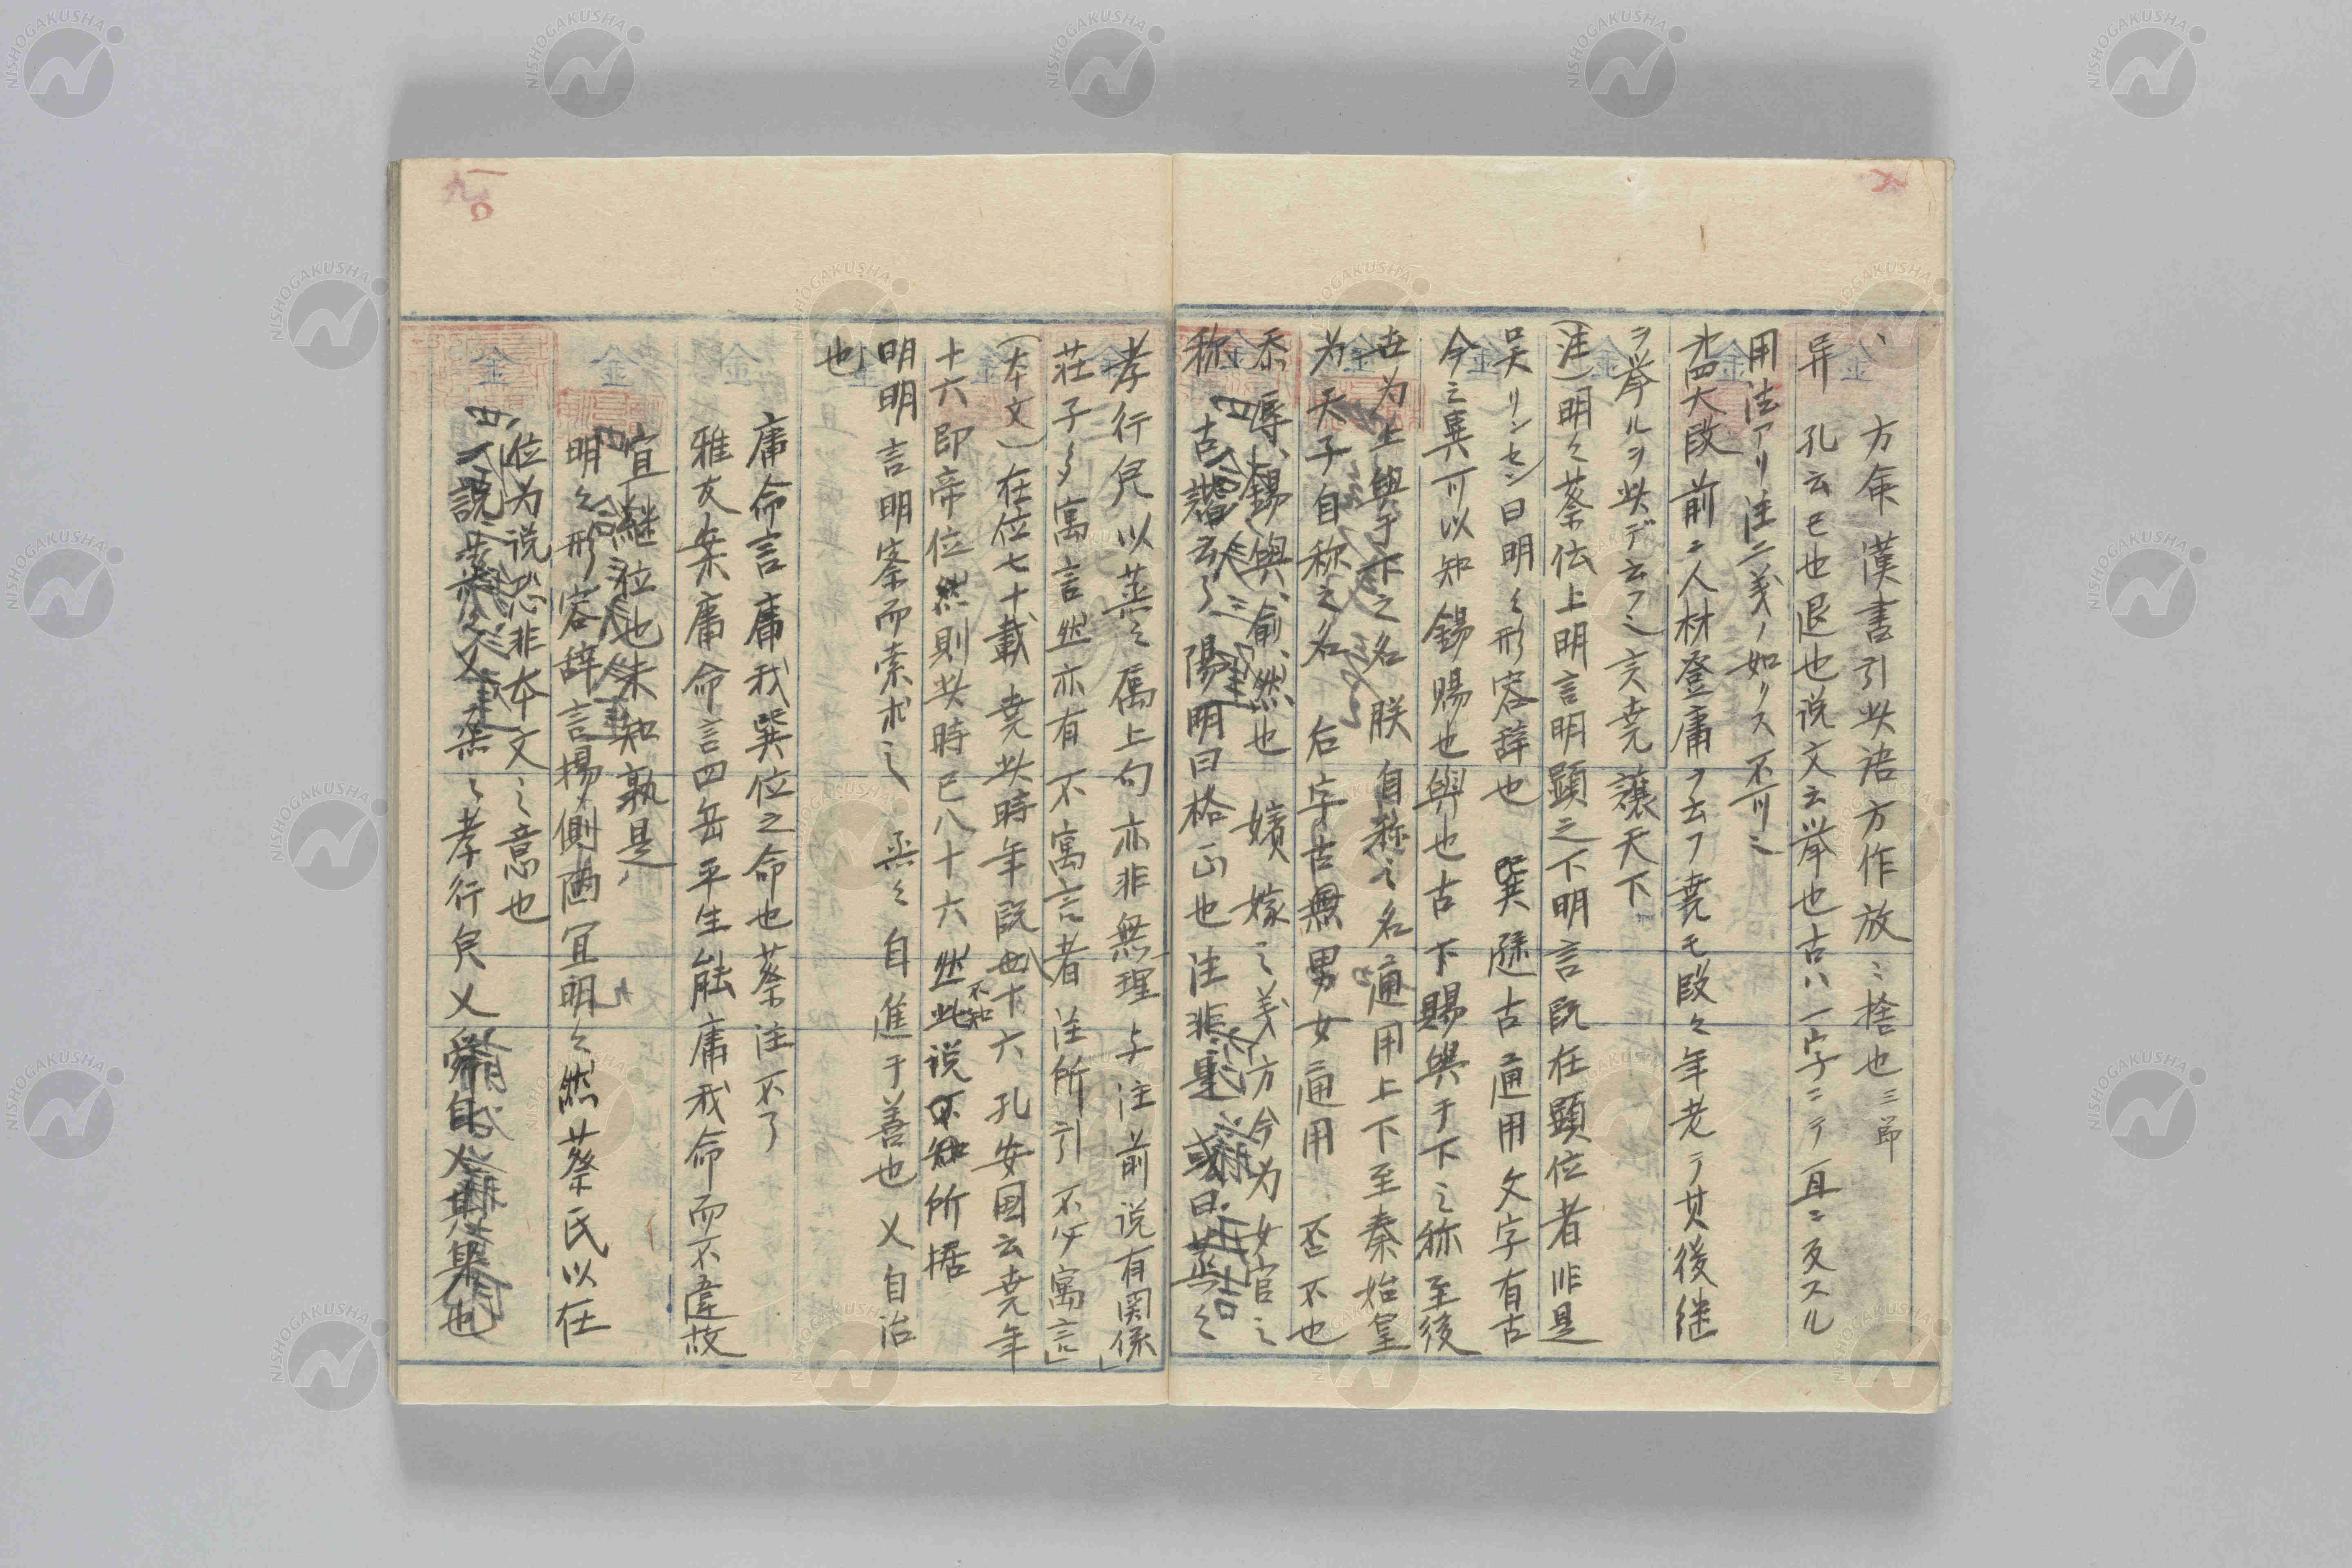 方命 漢書引此語方作放〻捨也 三節
异 孔云已也退也说文云挙也古ハ一字ニテ直ニ反スル
用法アリ注二義ノ如クス不可〻
才四大段前ニ人材登庸ヲ云フ堯モ段々年老テ其後継
ヲ挙ルヲ此デ云フ〻言堯譲天下
(注)明々蔡伝上明言明顕之下明言既在顕位者非是
呉リンセン曰明々形容辞也 巽遜古通用文字有古
今之異可以知錫賜也與也古下賜與于下之称至後
世为上與于下之名 朕 自称之名通用上下至秦始皇
为天子自称之名 后字古無男女通用 否不也
忝辱、錫與、俞然也 嬪嫁之義方今为女官之
称 古諧云了 陽明曰格正也注非是 或曰烝々
孝行皃以烝々属上句亦非無理与注前说有関係」
莊子多寓言然亦有不寓言者 注所引不必寓言」
(本文)在位七十載 堯此時年既八十六孔安国云堯年
十六即帝位然則此時已八十六 然此说不知所据
明明言明寀而索求之 烝々自進于善也乂自治
也
庸命言庸我巽位之命也蔡注不了
雅友案庸命言四岳平生能庸我命而不違故
宜継位也未知孰是
明々形容辞言揚側陋宜明々然蔡氏以在
位为说恐非本文之意也
一説 烝〻孝行皃乂 也
九
一〇
金
NISHOGAKUSHA